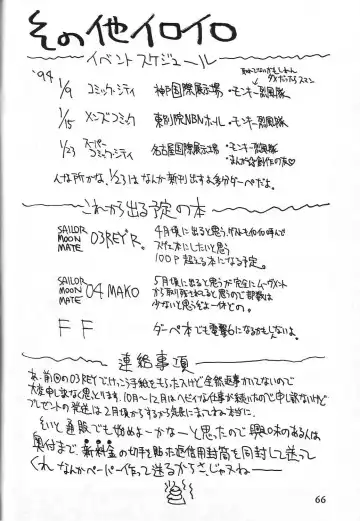 その他イロイロ
イベントスケジュール
'94
1/9 コミックシティ 神戸国際展示場・モンキー烈風隊
1/15 メンズコミック 東別院NBNホール・モンキー烈風隊
1/23 スーパーコミックシティ 名古屋国際展示場・モンキー烈風隊
・まんが創作の友
んな所かな、1/23はなんか新刊出すよ多分ダーペだよ。
これから出る予定の本
SAILOR MOON MATE 03 REY'R。
4月頃に出ると思う、ゲストもイロイロ呼んで
スゲェ本にしたいと思う
100P超える本になる予定。
SAILOR MOON MATE 04 MAKO
5月頃に出ると思うが完全にムーヴメント
から取り残されてると思うので部数は
少ないと思うぞよー一体どの。
FF
ダーペ本でも電撃6になるかもしんないよ。
連絡事項
あ、前の03REYでけっこう手紙をもらったけど全然返事かいてないので
大変申し訳なく思とります。10月〜12月はヘビィな仕事が続いたので申し訳ないけど
プレゼントの発送は2月頃からするから気長にまってネ、本当に。
そいと通販でも始めよーかなーと思ったので興味のある人は
奥付まで、新料金の切手を貼った返信用封筒を同封して送って
くれ なんかペーパー作って送るからさ、じゃネー
66